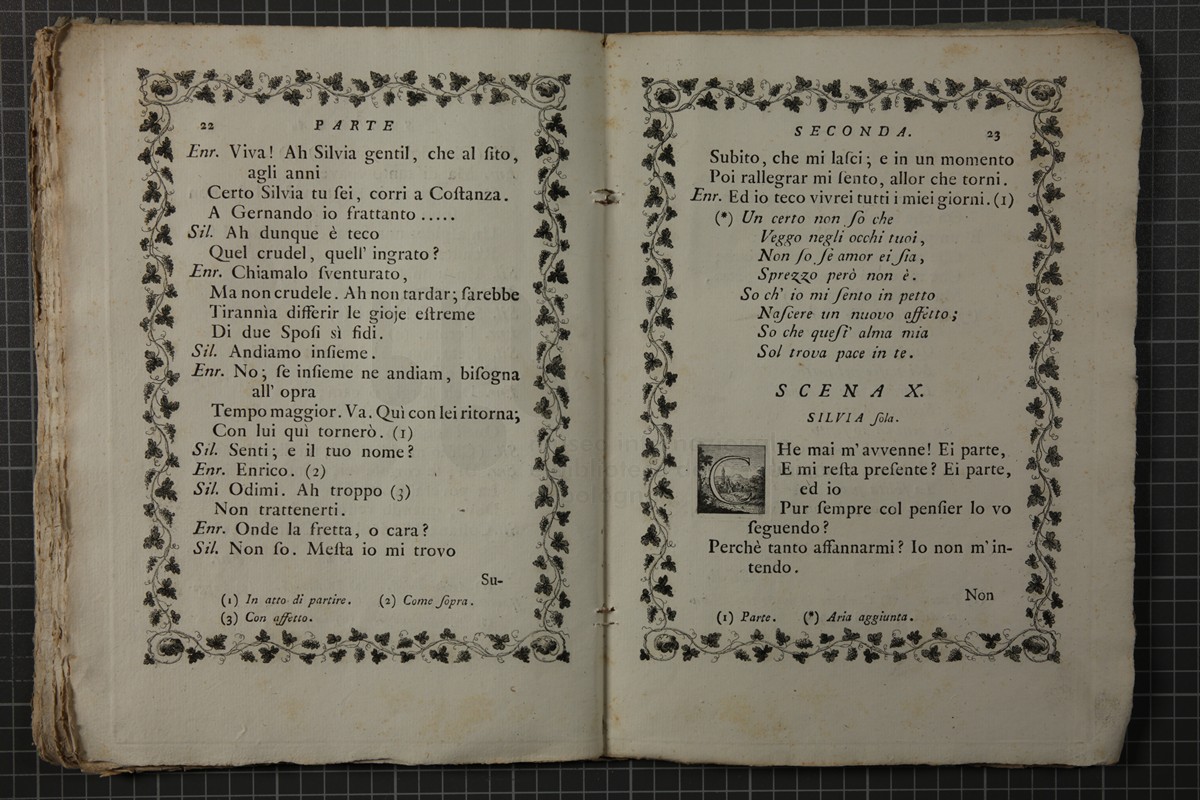 22 PARTE
Enr. Viva! Ah Silvia gentil, che al ſito,
agli anni
Certo Silvia tu ſei, corri a Coſtanza.
A Gernando io frattanto .....
Sil. Ah dunque è teco
Quel crudel, quell' ingrato?
Enr. Chiamalo ſventurato,
Ma non crudele. Ah non tardar; ſarebbe
Tirannìa differir le gioje eſtreme
Di due Spoſi sì fidi.
Sil. Andiamo inſieme.
Enr. No; ſe inſieme ne andiam, biſogna
all' opra
Tempo maggior. Va. Quì con lei ritorna;
Con lui quì tornerò. (1)
Sil. Senti; e il tuo nome?
Enr. Enrico. (2)
Sil. Odimi. Ah troppo (3)
Non trattenerti.
Enr. Onde la fretta, o cara?
Sil. Non ſo. Meſta io mi trovo
Su-
(1) In atto di partire. (2) Come ſopra.
(3) Con affetto.
SECONDA. 23
Subito, che mi laſci; e in un momento
Poi rallegrar mi ſento, allor che torni.
Enr. Ed io teco vivrei tutti i miei giorni. (1)
(*) Un certo non ſo che
Veggo negli occhi tuoi,
Non ſo ſe amor ei ſia,
Sprezzo però non è.
So ch' io mi ſento in petto
Naſcere un nuovo affetto;
So che queſt' alma mia
Sol trova pace in te.
SCENA X.
SILVIA ſola.
CHe mai m' avvenne! Ei parte,
E mi reſta preſente? Ei parte,
ed io
Pur ſempre col penſier lo vo
ſeguendo?
Perchè tanto affannarmi? Io non m' in-
tendo.
Non
(1) Parte. (*) Aria aggiunta.